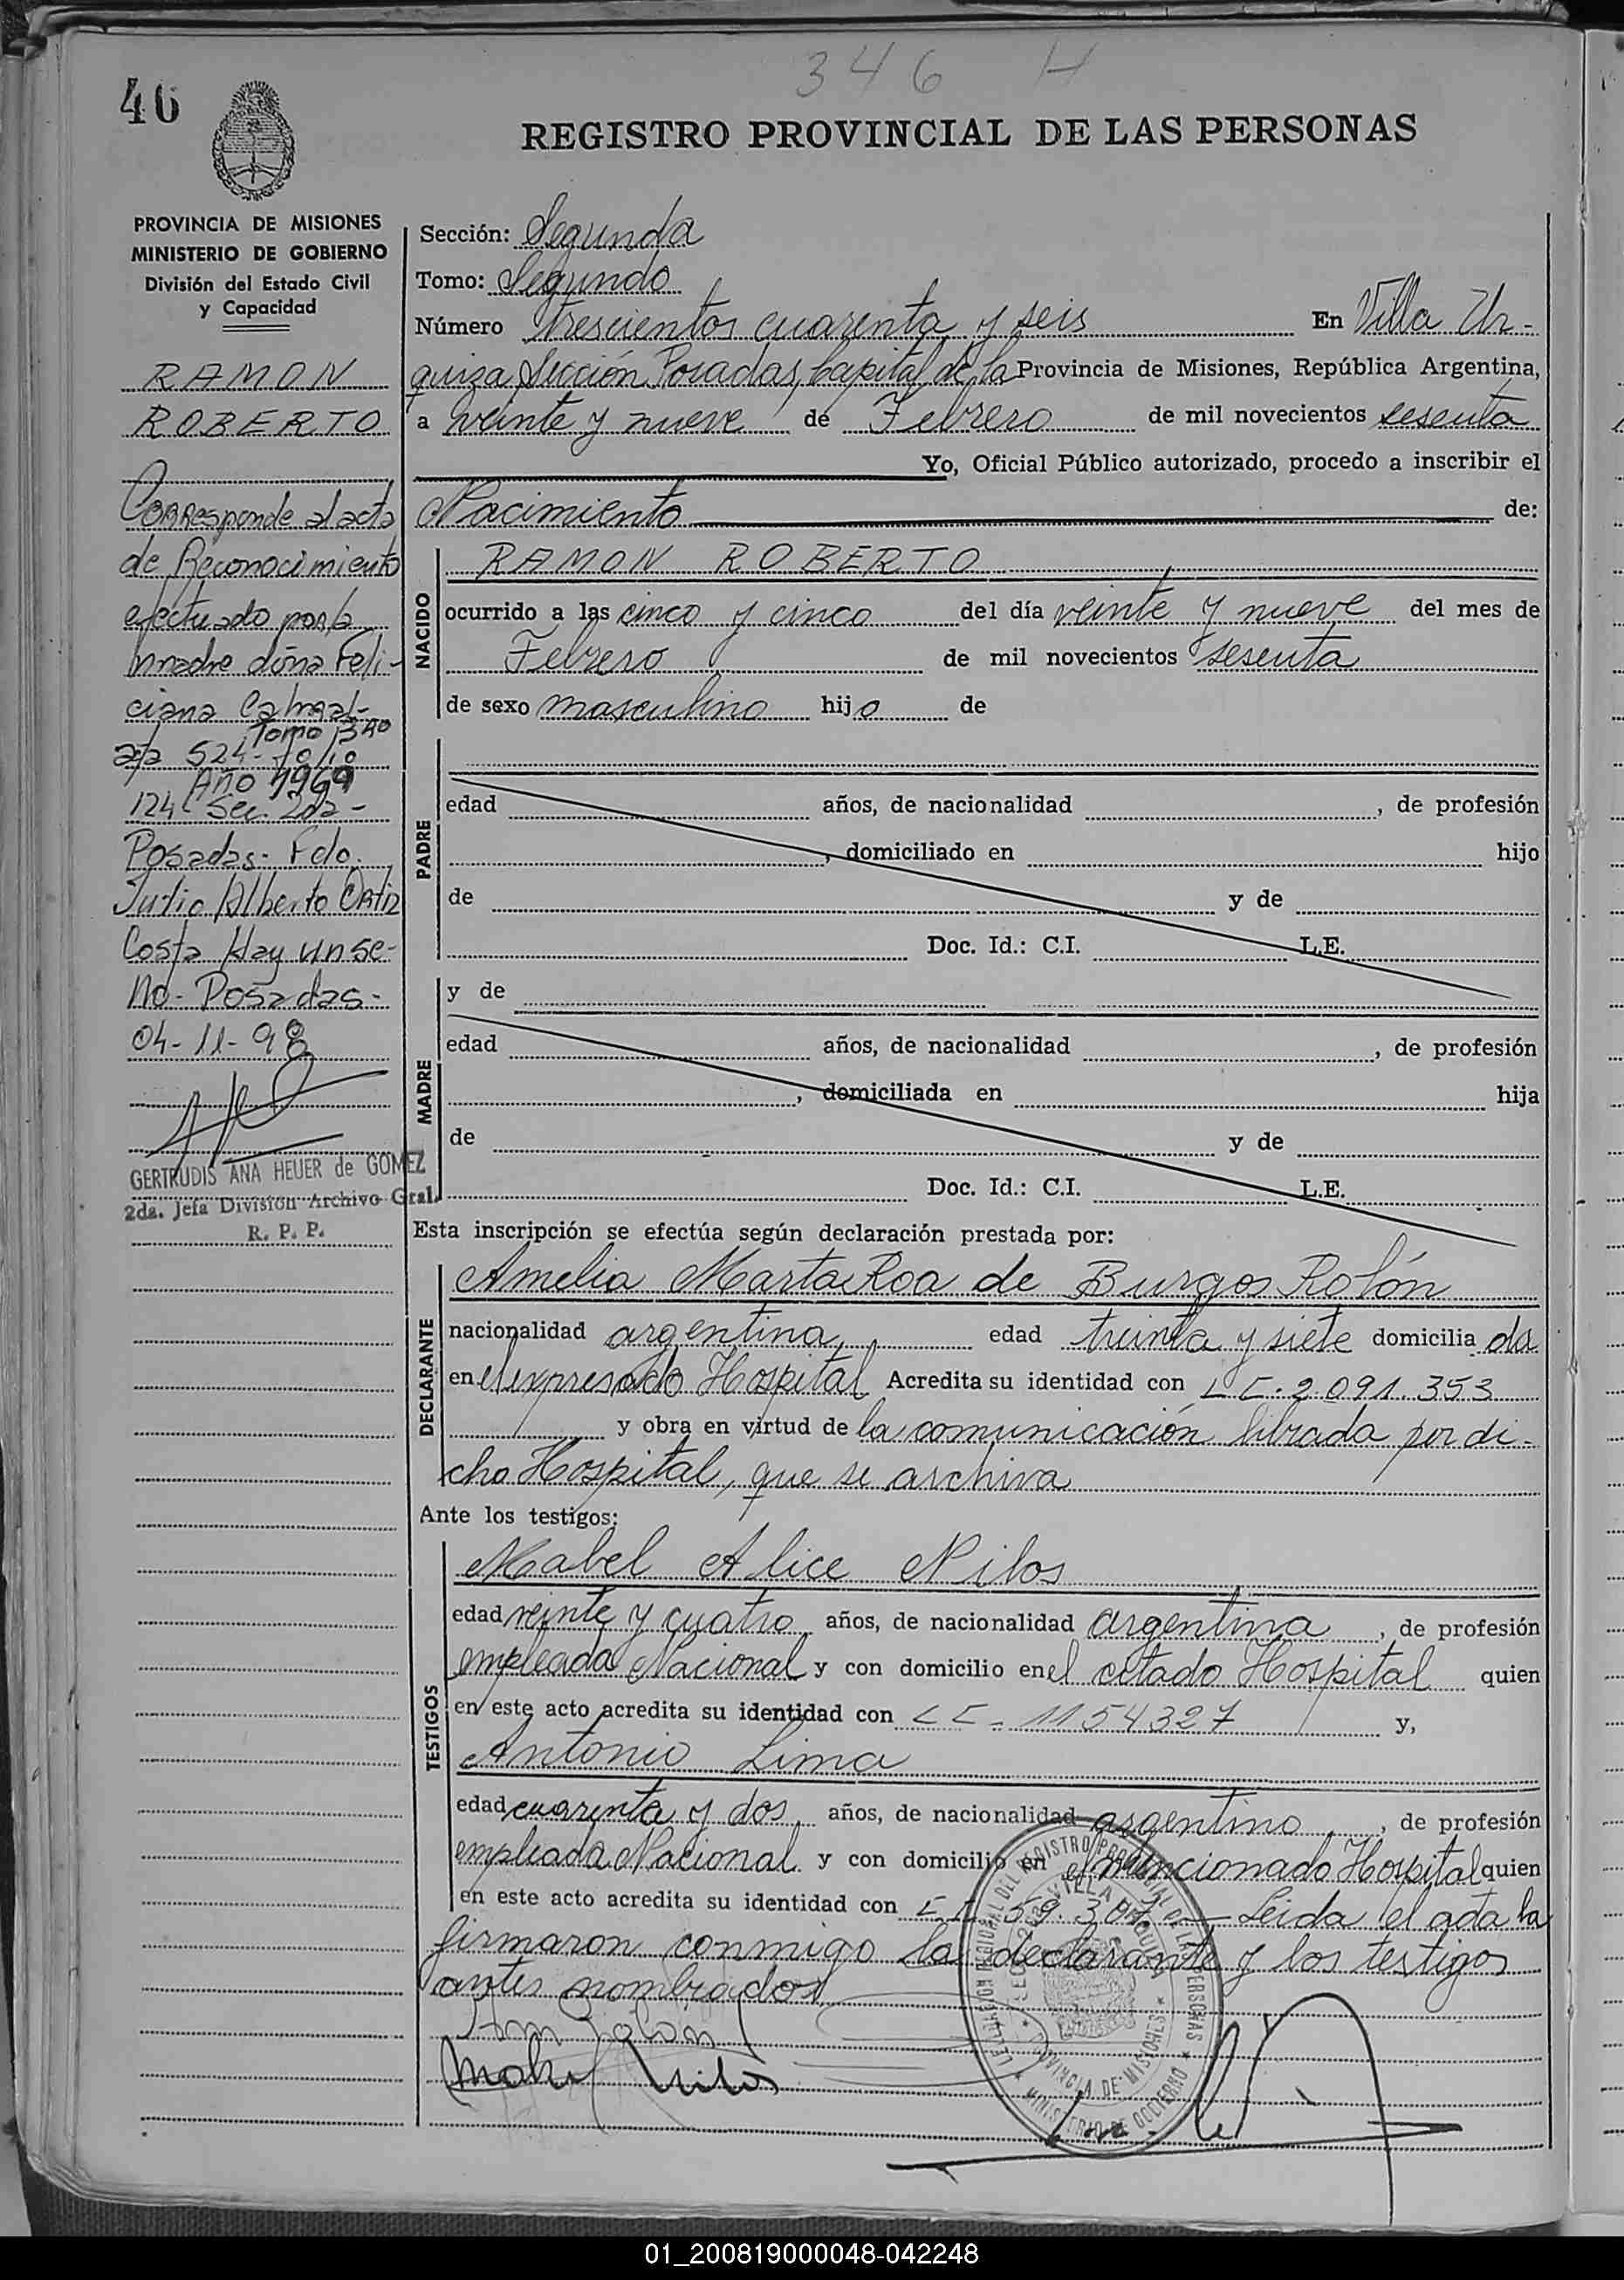 346 H
46
REGISTRO PROVINCIAL DE LAS PERSONAS
PROVINCIA DE MISIONES
MINISTERIO DE GOBIERNO
División del Estado Civil
y Capacidad
RAMON
ROBERTO
Corresponde al acta
de Reconocimiento
efectuado por la
madre doña Feli-
ciana Cabral-
Tomo 1340
acta 524- folio
Año 1969
124 Sec. 2da-
Posadas- Fdo.
Julio Alberto Ortiz
Costa Hay un se-
llo- Posadas-
04-11-98
GERTRUDIS ANA HEUER de GOMEZ
2da. Jefa División Archivo Gral.
R. P. P.
Sección: Segunda
Tomo: Segundo
Número trescientos cuarenta y seis En Villa Ur-
quiza Sección Posadas, Capital de la Provincia de Misiones, República Argentina,
a veinte y nueve de Febrero de mil novecientos sesenta
Yo, Oficial Público autorizado, procedo a inscribir el
Nacimiento de:
NACIDO
RAMON ROBERTO
ocurrido a las cinco y cinco del día veinte y nueve del mes de
Febrero de mil novecientos sesenta
de sexo masculino hijo de
PADRE
edad años, de nacionalidad , de profesión
, domiciliado en hijo
de y de
Doc. Id.: C.I. L.E.
MADRE
y de
edad años, de nacionalidad , de profesión
, domiciliada en hija
de y de
Doc. Id.: C.I. L.E.
Esta inscripción se efectúa según declaración prestada por:
DECLARANTE
Amelia Marta Roa de Burgos Rolón
nacionalidad argentina, edad treinta y siete domiciliada
en el expresado Hospital Acredita su identidad con L C. 2.091.353
y obra en virtud de la comunicación librada por di-
cho Hospital, que se archiva
Ante los testigos:
TESTIGOS
Mabel Alice Nilos
edad veinte y cuatro años, de nacionalidad argentina , de profesión
empleada Nacional y con domicilio en el citado Hospital quien
en este acto acredita su identidad con L C - 1154327 y,
Antonio Lima
edad cuarenta y dos años, de nacionalidad argentino , de profesión
empleada Nacional y con domicilio en el mencionado Hospital quien
en este acto acredita su identidad con Leida el acta la
firmaron conmigo la declarante y los testigos
antes nombrados
Mabel Nilos
DEL REGISTRO PROVINCIAL DE LAS PERSONAS
VILLA URQUIZA
PROVINCIA DE MISIONES
MINISTERIO DE GOBIERNO
01_200819000048-042248